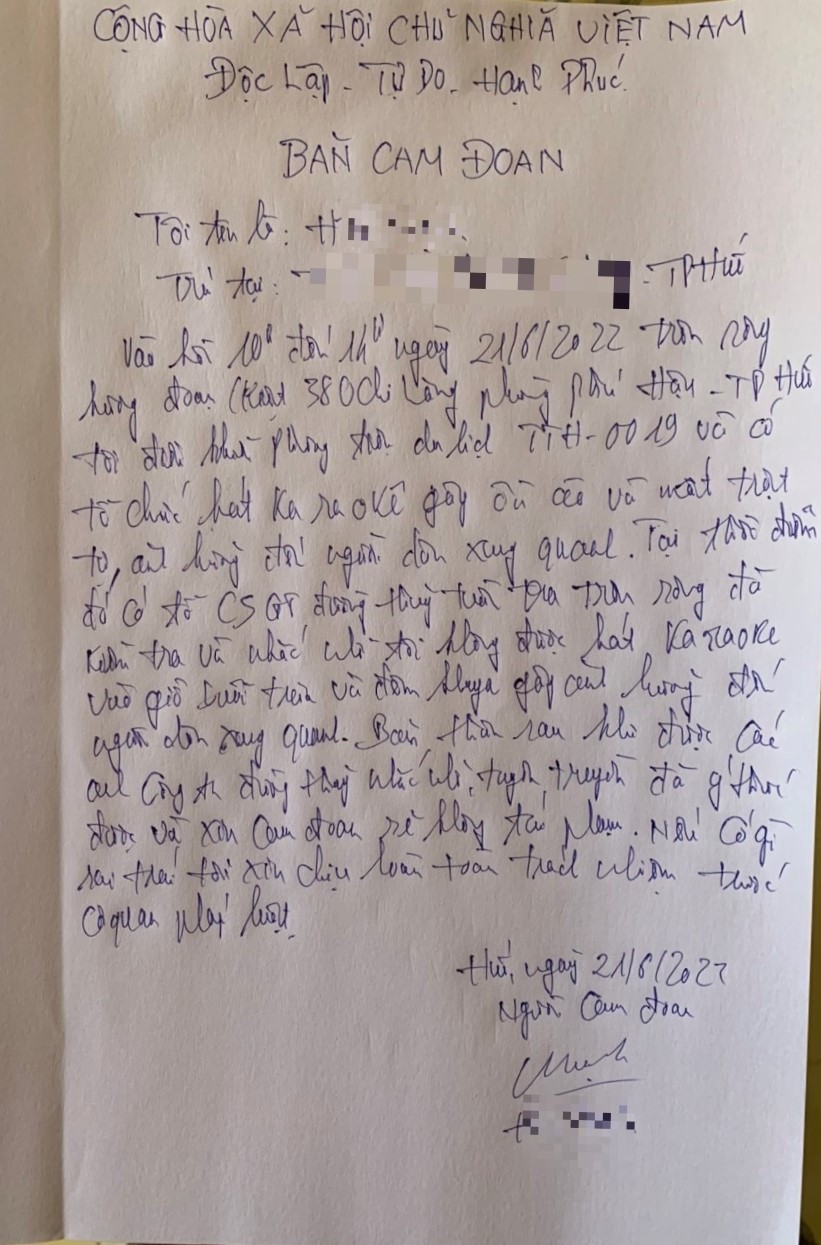 CỘNG HÒA XÃ HỘI CHỦ NGHĨA VIỆT NAM
Độc Lập - Tự Do - Hạnh Phúc.
BẢN CAM ĐOAN
Tôi tên là: H
Trú tại: - TP Huế
Vào hồi đến ngày 21/6/2022 trên sông
hương đoạn (Kiệt 380 Chi Lăng phường phú Hậu - TP Huế
tôi điều khiển phương tiện du lịch TTH-0019 và có
tổ chức hát Karaokê gây ồn ào và mất trật
tự, ảnh hưởng đến người dân xung quanh. Tại thời điểm
đó có tổ CSGT đường thủy tuần tra trên sông đã
kiểm tra và nhắc nhở tôi không được hát Karaoke
vào giờ và đêm khuya gây ảnh hưởng đến
người dân xung quanh. Bản thân sau khi được các
anh Công an đường thủy nhắc nhở, tuyên truyền đã ý thức
được và xin Cam đoan sẽ không tái phạm. Nếu Có gì
sai trái tôi xin chịu hoàn toàn trách nhiệm trước
Cơ quan pháp luật.
Huế, ngày 21/6/2022
Người Cam đoan